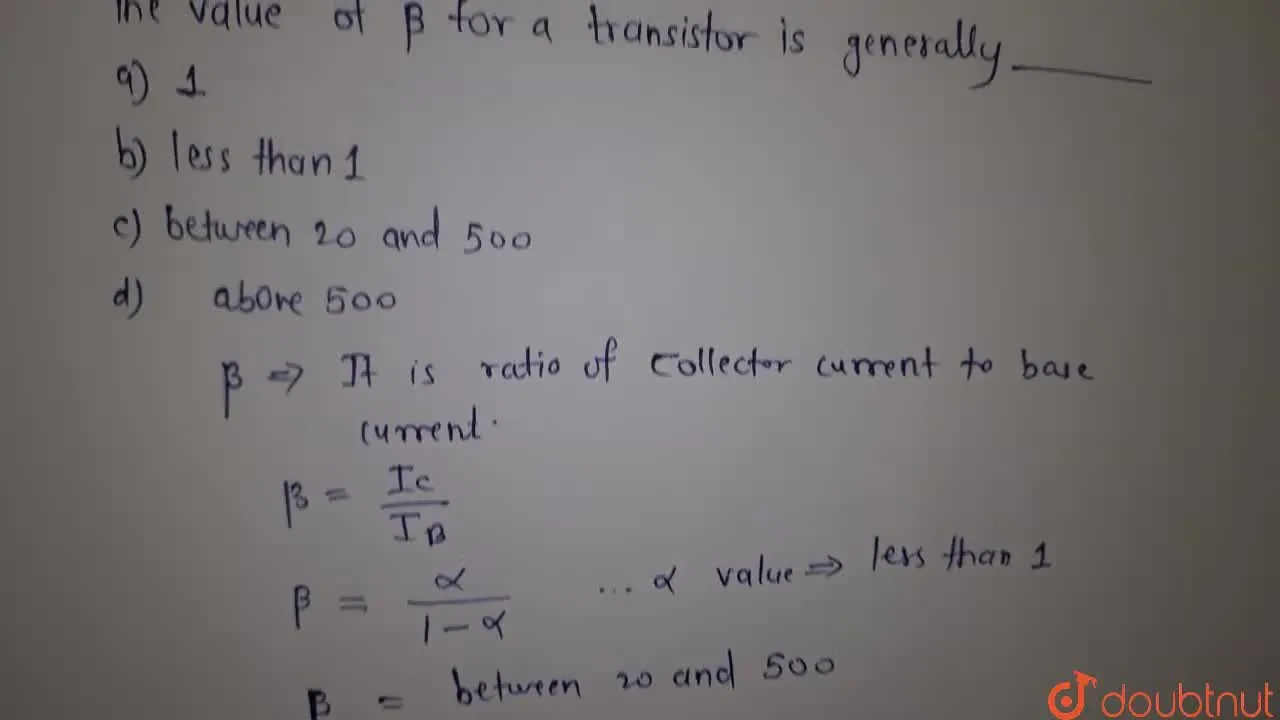 The value of β for a transistor is generally ____
a) 1
b) less than 1
c) between 20 and 500
d) above 500
β ⇒ It is ratio of collector current to base
current.
β = Ic / IB
β = α / 1-α ... α value ⇒ less than 1
β = between 20 and 500
doubtnut